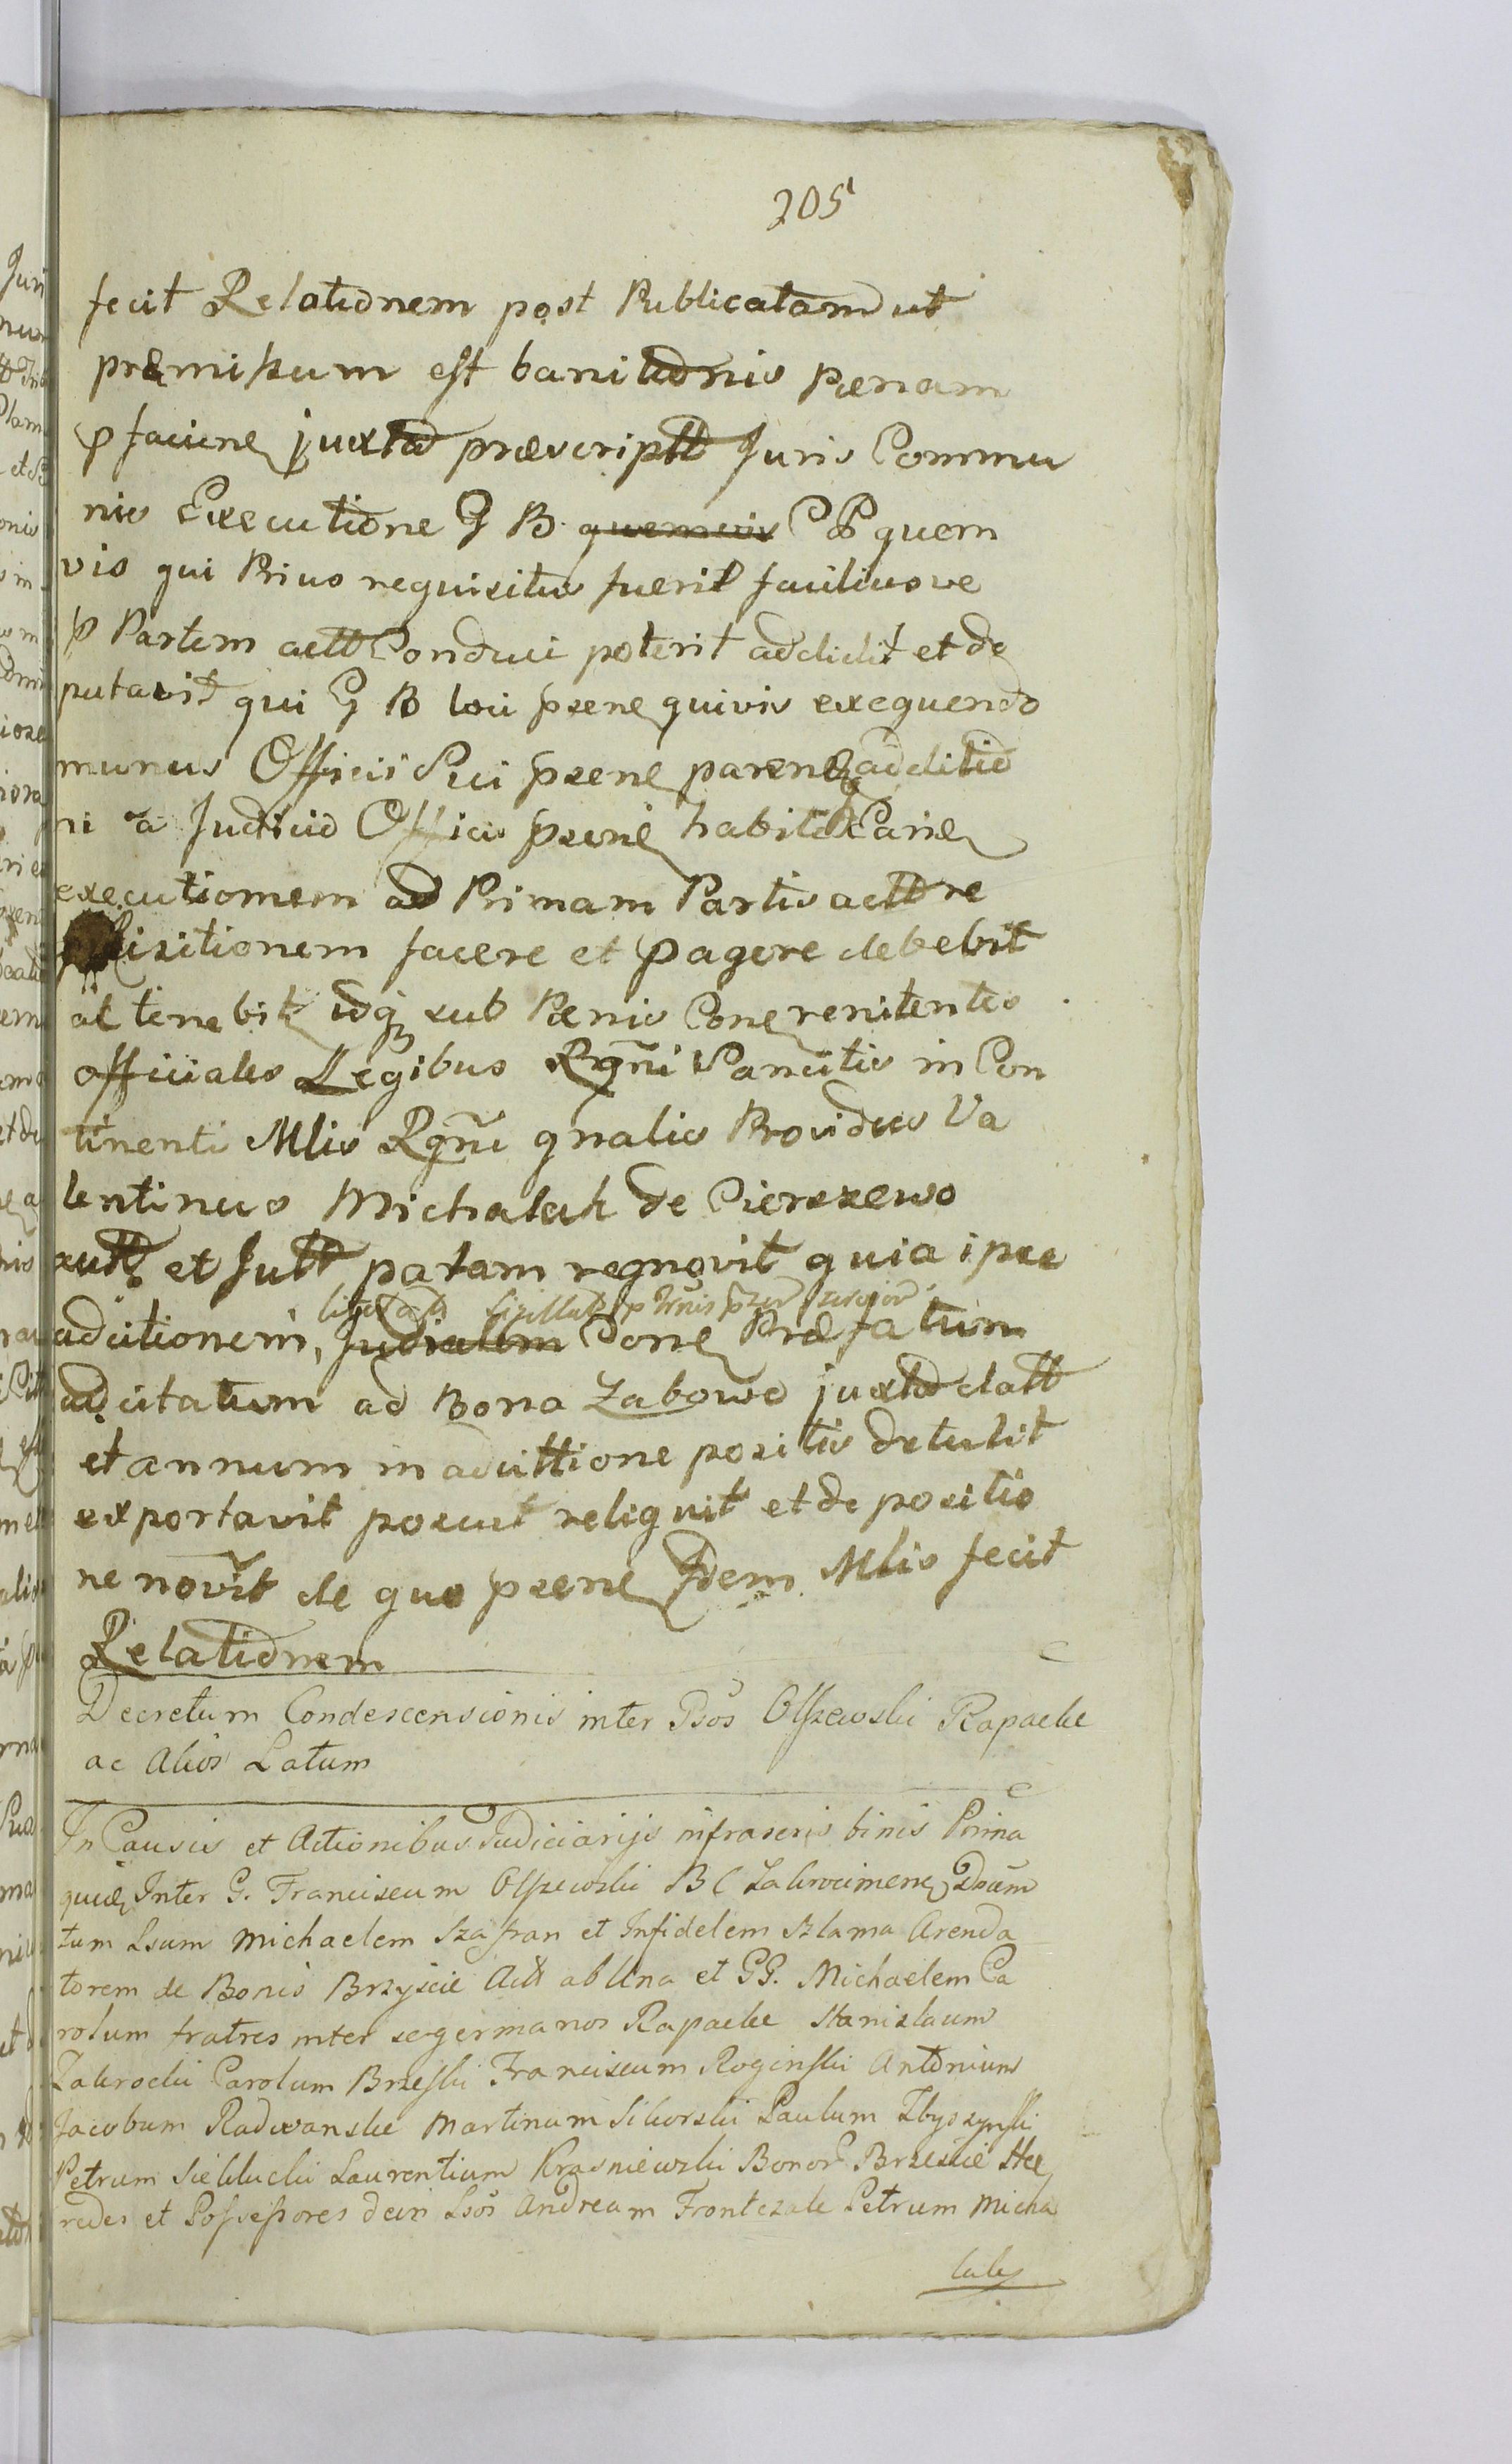 205
fecit Relationem post Publicatam ut
præmissum est banitionis pænam
p faciene juxta præscripttt Juris Commu
nis Executione G B quemvis C quem
vis qui Prius requisitus fuerit faciliusve
p Partem actt Conduci poterit addidit et de
putavit qui G B loci psene quivis exequendo
munus Officii Sui psene paren additio
ni a Judicio Officio psene habita
executionem ad Primam Partis actt re
quisitionem facere et pagere debebit
at tenebit idq sub Penis Cone renitentes
officiales Legibus Rgni Sancitis in Con
tinenti Mlis Rgni gnalis Providus Va
lentinus Michalak de Pierszewo
autt et Jutt palam regnovit quia ipse
adcitionem, Judialem Cone Præfatum
adcitatum ad Bona Zabowo juxta datt
et annum in adcittione positis detulit
exportavit posuit reliquit et de positio
ne novit de quo psene Idem Mlis fecit
Relationem
Decretum Condescensionis inter Psos Olszewski Rapacke
ac Alios Latum
In Causis et Actionibus Judiciarijs infraseris binis Prima
quid Inter G. Franciscum Olszewski B C Zakrocimene
tum Lsum Michaelem Szafran et Infidelem Szlama Arenda
torem de Bonis Brzyscie Actt ab Una et GG. Michaelem Ca
rolum fratres inter se germanos Rapacke Stanislaum
Zakrocki Carolum Brzeski Franciscum Roginski Antonium
Jacobum Radwanskie Martinum Sikorski Paulum Zbyszynski
Petrum Sieklucki Laurentium Krasniewski Bonor Brzescie Hæ
redes et Possessores dein Lsos Andream Frontczak Petrum Micha
lak